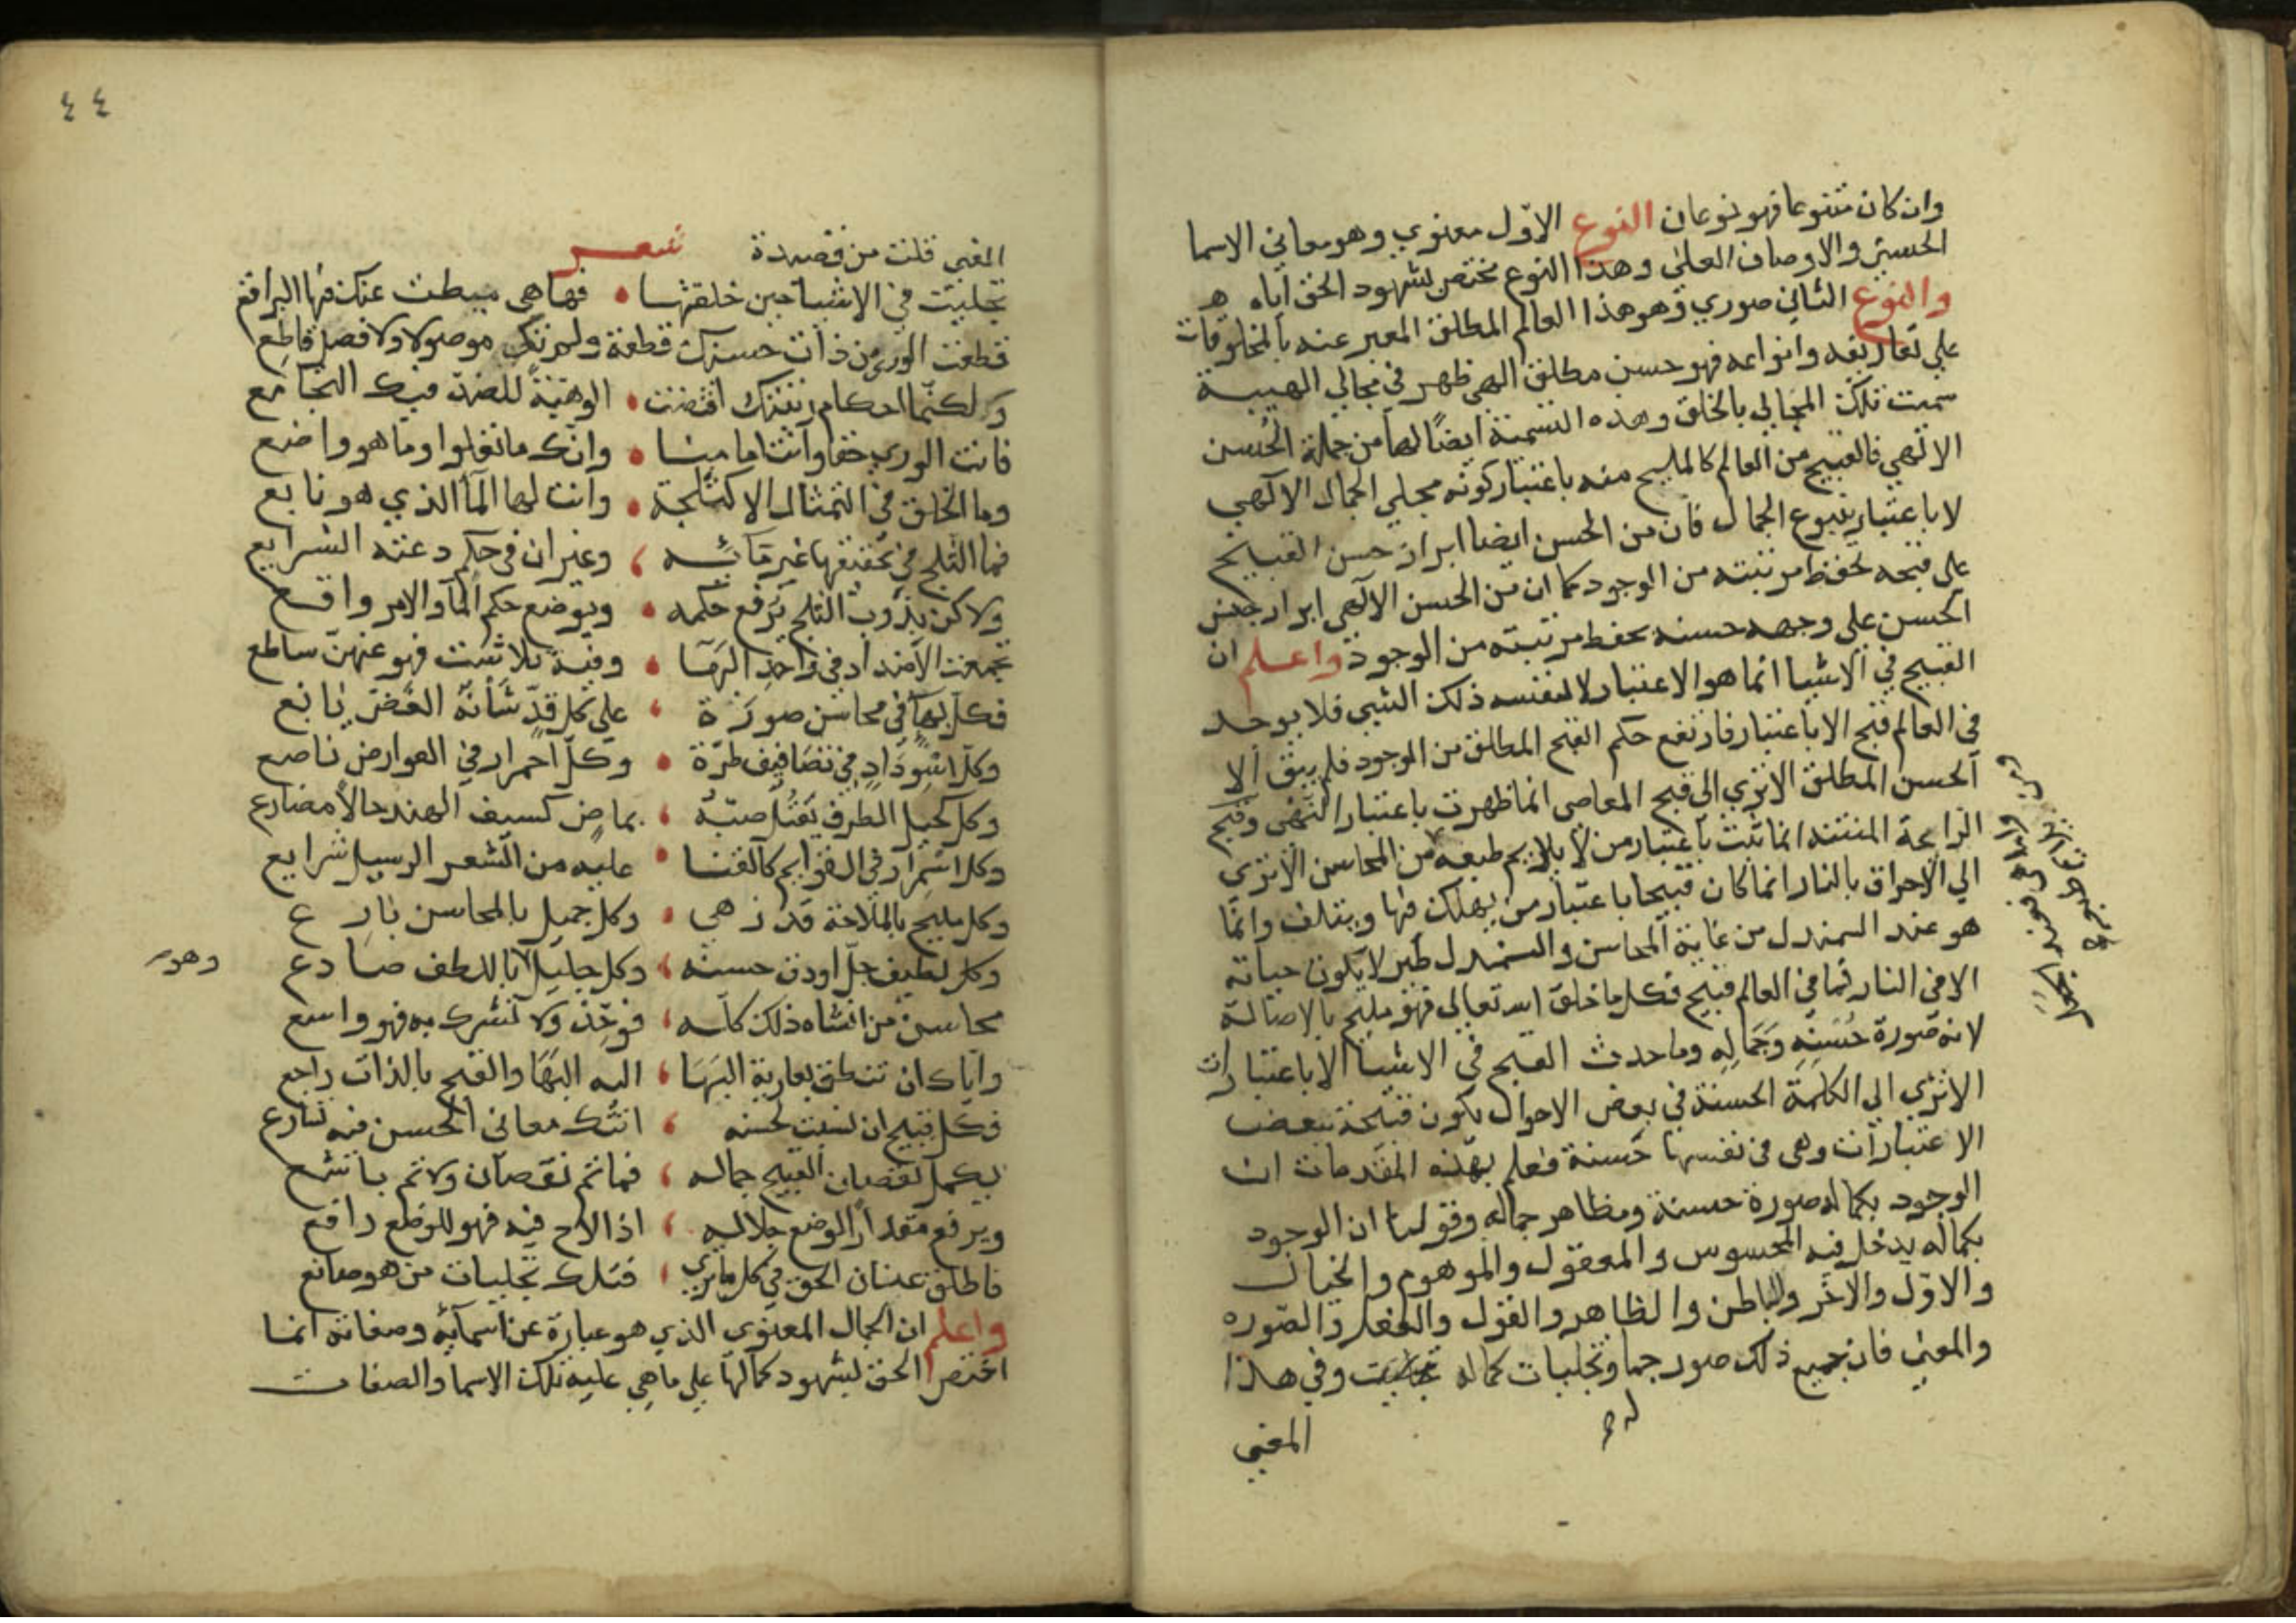 وان كان متنوعا فهو نوعان النوع الاوّل معنوي وهو معاني الاسما
الحسنى والاوصاف العلى وهذا النوع مختص بشهود الحق اياه
والنوع الثاني صوري وهو هذا العالم المطلق المعبر عنه بالمخلوقات
علي تفاريعه وانواعه فهو حسن مطلق الهي ظهر في مجالي الهيية
سميت تلك المجالي بالخلق وهذه التسمية ايضًا لها من جملة الحُسن
الالهي فالقبيح من العالم كالمليح منه باعتبار كونه مجلي الجمال الالهي
لا باعتبار تنوع الجمال فان من الحسن ايضا ابراز حسن القبيح
على قبحه لحفظ مرتبته من الوجود كما ان من الحسن الالهي ابراز جنس
الحسن علي وجهه حسنه لحفظ مرتبته من الوجود واعلم ان
القبيح في الاشيا انما هو الاعتبار لا لنفسه ذلك الشيي فلا يوجد
في العالم قبح الا باعتبار فارتفع حكم القبح المطلق من الوجود فلم يبق الا
الحسن المطلق الا تري الي قبح المعاصي انما ظهرت باعتبار النهى وقبح
الرايحة المنتنه انما ثبت باعتبار من لا يلايم طبعه من المحاسن الا تري
الي الاحراق بالنار انما كان قبيحا باعتبار من يهلك فيها ويتلف وانما
هو عند السمندل من غاية المحاسن والسمندل طير لا يكون حياته
الا في النار فما في العالم قبيح فكل ما خلق الله تعالي فهو مليح بالاصالة
لانه صورة حُسنِه وجَمَالِه وما حدث القبح في الاشيا الا باعتبارات
الا تري الي الكلمة الحسنة في بعض الاحوال يكون قبيحة ببعض
الاعتبارات وهي في نفسها حسنة فعلم بهذه المقدمات ان
الوجود بكماله صورة حسنة ومظاهر جماله وقولنا ان الوجود
بكماله يدخل فيه المحسوس والمعقول والموهوم والخيال
والاوّل والاخر والباطن والظاهر والقول والفعل والصوره
والمعنى فان جميع ذلك صور جما وتجليات كماله وفي هذا
له
المعنى
٤٤
المعنى قلت من قصيدة شعر
تجليت في الاشيا حين خلقتها • فها هي ميطت عنك فيها البراقع
قطعت الورى من ذات حسنك قطعة ولم تك موصولا ولا فصل قاطع
ولكنما احكام رتبتك اقتضت • الوهيةً للضد فيك التجامع
فانت الوري حقا وانت امامنا • وانك ما تعلوا وما هو واضع
وما الخلق في التمثال الا كثلجة • وانت لها المآ الذي هو نابع
فما الثلج في تحقيقها غير مآئه ، وغيران في حكم دعته الشرايع
ولاكن بذوب الثلج يرفع حكمه • ويوضع حكم المآ والامر واقع
تجمعت الاضداد في واحد البها • وفيه تلاشت فهو عنهن ساطع
فكل بها في محاسن صورة ، علي كل قدّ شأنه الغض يانع
وكل اسوداد في تضافيف طرّة • وكل احمرار في العوارض ناصع
وكل كحيل الطرف يقتل صبّه ، بماض كسيف الهند حالا مضارع
وكل اسمرار في القوايم كالقنا • عليه من الشعر الرسيل شرايع
وكل مليح بالملاحة قد زهى • وكل جميل بالمحاسن بارع
وكل لطيف جلّ او دق حسنه ، وكل جليل بالبلطف صادع
وهو
محاسن من انشاه ذلك كله ، فوحّد ولا تشرك به فهو واسع
واياك ان تنطق بعارية البها ، اليه البها والقبح بالذات راجع
فكل قبيح ان نسبت لحسنه ، اتتك معاني الحسن فيه تسارع
يكمل نقصان القبيح جماله ، فما ثم نقصان ولا ثم باشع
ويرفع مقدار الوضيع جلاله ، اذا لاح فيه فهو للوضع رافع
فاطلق عنان الحق في كل ما تري ، فتلك تجليات من هو صانع
واعلم ان الجمال المعنوي الذي هو عبارة عن اسمآئه وصفاته انما
اختص الحق بشهود كمالها علي ما هي عليه تلك الاسما والصفات